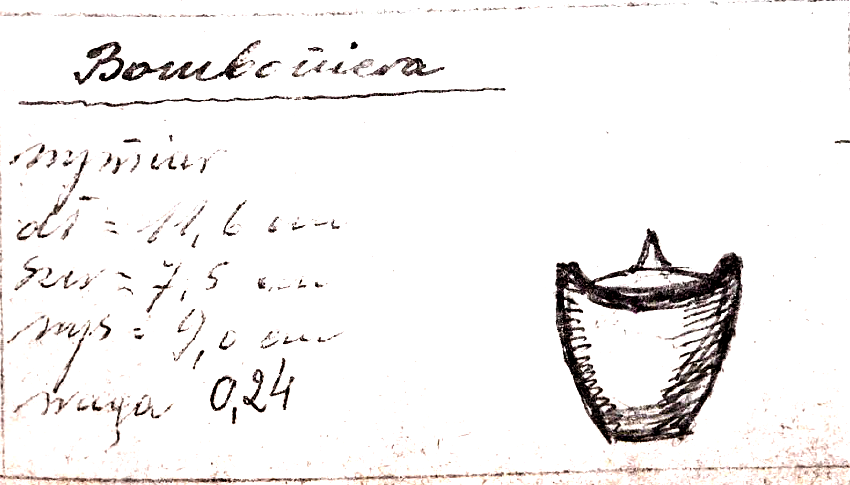 Bomboniera
wymiar
dł = 11,6 cm
szer = 7,5 cm
wys = 9,0 cm
waga 0,24